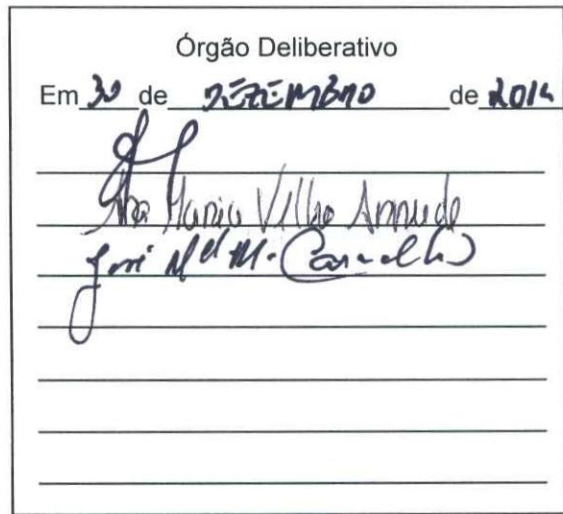 Órgão Deliberativo
Em 30 de DEZEMBRO de 2014
Ana Maria Velho Arruda
José M. Carvalho